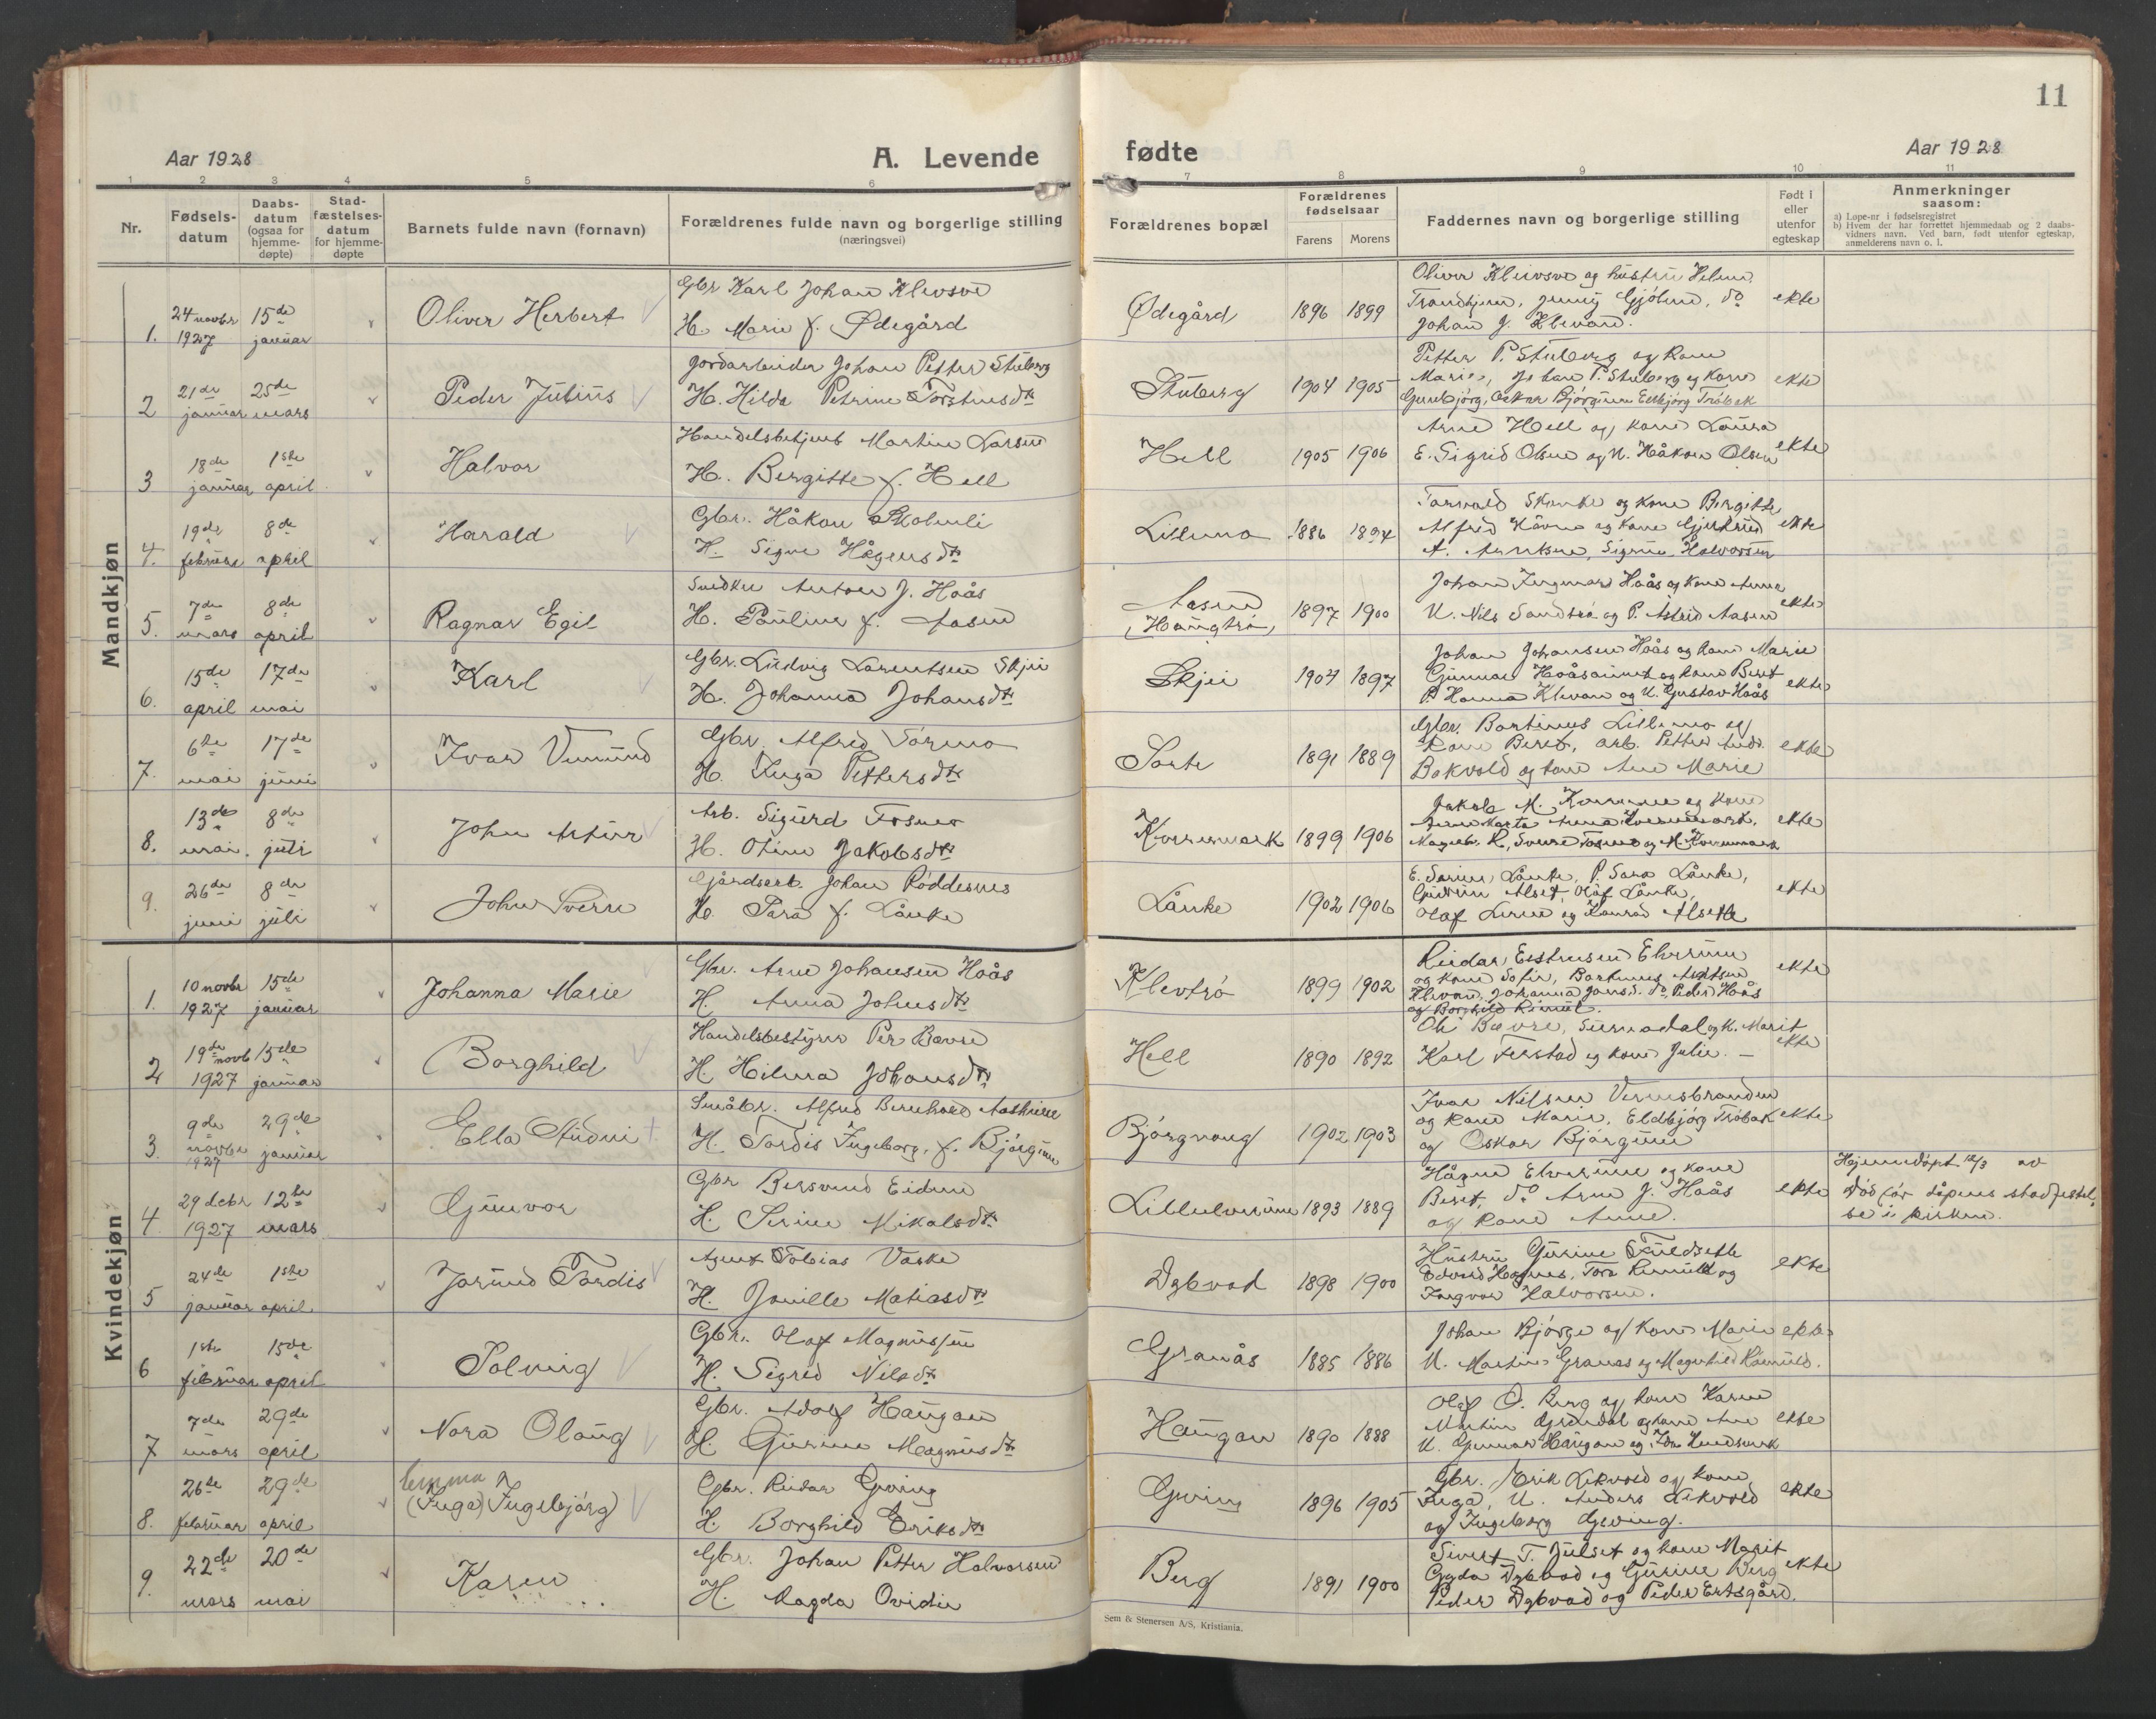 11
Aar 1928
A. Levende
fødte
Aar 1928
1 2 3 4 5 6 7 8 9 10 11
Nr.
Fødsels-
datum
Daabs-
datum
(ogsaa for
hjemme-
døpte)
Stad-
fæstelses-
datum
for hjemme-
døpte
Barnets fulde navn (fornavn)
Forældrenes fulde navn og borgerlige stilling
(næringsvei)
Forældrenes bopæl
Forældrenes
fødselsaar
Farens Morens
Faddernes navn og borgerlige stilling
Født i
eller
utenfor
egteskap
Anmerkninger
saasom:
a) Løpe-nr i fødselsregistret
b) Hvem der har forrettet hjemmedaab og 2 daabs-
vidners navn. Ved barn, født utenfor egteskap,
anmelderens navn o. l.
Mandkjøn
1. 24 novbr 1927 15de januar
Oliver Herbert
Gbr Karl Johan Klevsve
H. Marie f. Ødegård
Ødegård 1896 1899
Oliver Klevsve og hustru
Trondhjem, Jenny do
Johan J. Klevan.
ekte
2 21de januar 25de mars
Peder Julius
Jordarbeider Johan Petter Stuberg
H. Hilda Petrine
Stuberg 1904 1905
Petter P. Stuberg og kone
Marie, Johan P. Stuberg og kone
Gunbjörg, Oskar Björgum Eldbjörg Tröbak
ekte
3 18de januar 1ste april
Halvor
Handelsbetjent Martin Larsen
H. Bergitte f. Hell
Hell 1905 1906
Arne Hell og kone Laura
E. Sigrid Olsen og U. Håkon Olsen
ekte
4. 19de februar 8de april
Harald
Gbr. Håkon
H. Signe Hågensdtr
Lillemo 1886 1894
og kone Birgitte
Alfred og kone Gjertrud
Halvorsen
ekte
5. 7de mars 8de april
Ragnar Egil
Snedker Anton J. Hoås
H. Pauline f. Aasen
Aasen
(Haugtrö) 1897 1900
Johan Ingmar Hoås og kone Anna
U. Nils og P. Astrid Aasen
ekte
6. 15de april 17de mai
Karl
Gbr. Ludvig Larentsen Skjei
H. Johanna Johansdtr
Skjei 1904 1897
Johan Johansen Hoås og kone Marie
Gunnar og kone Beret
P. Hanna Klevan og U. Gustav Hoås
ekte
7. 6te mai 17de juni
Ivar Vemund
Gbr. Alfred Sörmo
H. Inga Pettersdtr
Sorte 1891 1889
Gbr. Bartinus Lillemo og
kone Beret, arb. Petter
Bakvold og kone Ane Marie
ekte
8. 13de mai. 8de juli
John Artur
Arb. Sigurd Fosnes
H. Oline Jakobsdtr
1899 1906
Jakob M. og kone
ekte
9. 26de juni 8de juli
John Sverre
Gårdsarb. Johan Röddesnes
H. Sara f. Lånke
Lånke 1902 1906
E. Lånke, P. Sara Lånke,
Gudrun Alset, Olaf Lånke,
Olaf og Konrad Alseth
ekte
Kvindekjøn
1. 10 novbr 1927 15de januar
Johanna Marie
Gbr. Arne Johansen Hoås
H. Anna Johnsdtr
Klevtrö 1899 1902
Reidar Elverum
og kone Sofie, Bartinus
Klevan, Johanna do, Peder Hoås
og Borghild
ekte
2 19de novb 1927 15de januar
Borghild
Handelsbestyrer Per Bævre
H. Hilma Johansdtr
Hell 1890 1892
Ole Bævre, Surnadal og k. Marit
Karl Ferstad og kone Julie. —
ekte
3. 9de novbr 1927 29de januar
Ella Audni
Småbr. Alfred Bernhard
H. Tordis Ingeborg, f. Björgum
Björgvang 1902 1903
Ivar Nilsen
og kone Marie, Eldbjörg Tröbak
og Oskar Björgum
ekte
4 29 debr 1927 12te mars
Gunvor
Gbr Bersvend Eidum
H. Serine Mikalsdtr
Lilleelverum 1893 1889
Hågen Elverum og kone
Beret, do Arne J. Hoås
og kone Anne.
ekte
Hjemmedöpt 12/3 av
Död för dåpens stadfestel-
se i kirken.
5 24de januar 1ste april
Jorund Tordis
Agent Tobias
H. Jonille Matiasdtr
Dybvad 1898 1900
Hustru Gurine
Ingvar Halvorsen.
ekte
6 1ste februar 15de april
Solveig
Gbr. Olaf Magnussen
H. Sigrid Nilsdtr
Granås 1885 1886
Johan Björge og kone Marie
U. Martin Granås og Magnhild
ekte
7 7de mars 29de april
Nora Olaug
Gbr. Adolf Haugan
H. Gurine Magnusdtr
Haugan 1890 1888
Olaf O. Berg og kone Karen
Martin og kone Ane
U. Gunnar Haugan og
ekte
8. 26de februar 29de april
(Inga) Ingebjörg
Gbr. Reidar Gjeving
H. Borghild Eriksdtr
Gjeving 1896 1905
Gbr. Erik Lekvold og kone
Inga, U. Anders Lekvold
og Ingeborg Gjeving.
ekte
9. 22de mars 20de mai
Karen
Gbr. Johan Petter Halvorsen
H. Magda Ovidie
Berg 1891 1900
Sivert T. Julset og kone Marit
Gyda Dybvad og Gurine Berg
Peder Dybvad og Peder Ertsgård.
ekte
Sem & Stenersen A/S, Kristiania.